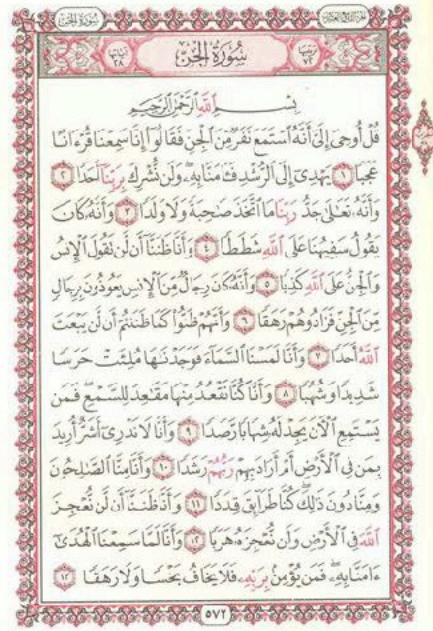 الجزء التاسع والعشرون
سورة الجن
ترتيبها ٧٢
سُورَةُ الجِنّ
آياتها ٢٨
بِسْمِ اللَّهِ الرَّحْمَٰنِ الرَّحِيمِ
قُلْ أُوحِىَ إِلَىَّ أَنَّهُ ٱسْتَمَعَ نَفَرٌ مِّنَ ٱلْجِنِّ فَقَالُوٓا۟ إِنَّا سَمِعْنَا قُرْءَانًا
عَجَبًا ١ يَهْدِىٓ إِلَى ٱلرُّشْدِ فَـَٔامَنَّا بِهِۦ وَلَن نُّشْرِكَ بِرَبِّنَآ أَحَدًا ٢
وَأَنَّهُۥ تَعَٰلَىٰ جَدُّ رَبِّنَا مَا ٱتَّخَذَ صَٰحِبَةً وَلَا وَلَدًا ٣ وَأَنَّهُۥ كَانَ
يَقُولُ سَفِيهُنَا عَلَى ٱللَّهِ شَطَطًا ٤ وَأَنَّا ظَنَنَّآ أَن لَّن تَقُولَ ٱلْإِنسُ
وَٱلْجِنُّ عَلَى ٱللَّهِ كَذِبًا ٥ وَأَنَّهُۥ كَانَ رِجَالٌ مِّنَ ٱلْإِنسِ يَعُوذُونَ بِرِجَالٍ
مِّنَ ٱلْجِنِّ فَزَادُوهُمْ رَهَقًا ٦ وَأَنَّهُمْ ظَنُّوا۟ كَمَا ظَنَنتُمْ أَن لَّن يَبْعَثَ
ٱللَّهُ أَحَدًا ٧ وَأَنَّا لَمَسْنَا ٱلسَّمَآءَ فَوَجَدْنَٰهَا مُلِئَتْ حَرَسًا
شَدِيدًا وَشُهُبًا ٨ وَأَنَّا كُنَّا نَقْعُدُ مِنْهَا مَقَٰعِدَ لِلسَّمْعِ ۖ فَمَن
يَسْتَمِعِ ٱلْـَٔانَ يَجِدْ لَهُۥ شِهَابًا رَّصَدًا ٩ وَأَنَّا لَا نَدْرِىٓ أَشَرٌّ أُرِيدَ
بِمَن فِى ٱلْأَرْضِ أَمْ أَرَادَ بِهِمْ رَبُّهُمْ رَشَدًا ١٠ وَأَنَّا مِنَّا ٱلصَّٰلِحُونَ
وَمِنَّا دُونَ ذَٰلِكَ ۖ كُنَّا طَرَآئِقَ قِدَدًا ١١ وَأَنَّا ظَنَنَّآ أَن لَّن نُّعْجِزَ
ٱللَّهَ فِى ٱلْأَرْضِ وَلَن نُّعْجِزَهُۥ هَرَبًا ١٢ وَأَنَّا لَمَّا سَمِعْنَا ٱلْهُدَىٰٓ
ءَامَنَّا بِهِۦ ۖ فَمَن يُؤْمِنۢ بِرَبِّهِۦ فَلَا يَخَافُ بَخْسًا وَلَا رَهَقًا ١٣
٥٧٢